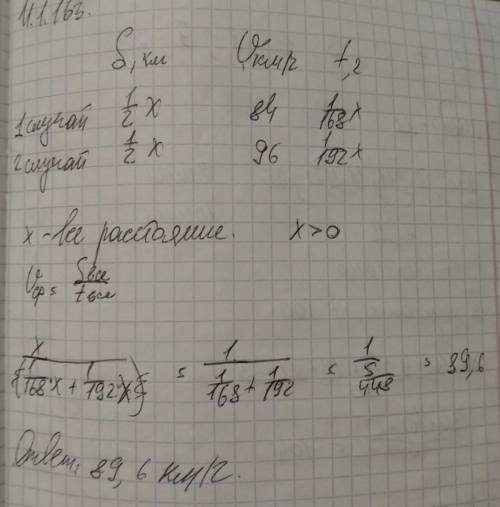 11.1.163.
S, км V, км/ч t, ч
1 случай 1/2 x 84 1/168 x
2 случай 1/2 x 96 1/192 x
x - все расстояние. x > 0
Vср = Sвсе/tвсе
x/(1/168 x + 1/192 x) = 1/(1/168 + 1/192) = 1/(5/448) = 89,6
Ответ: 89,6 км/ч.